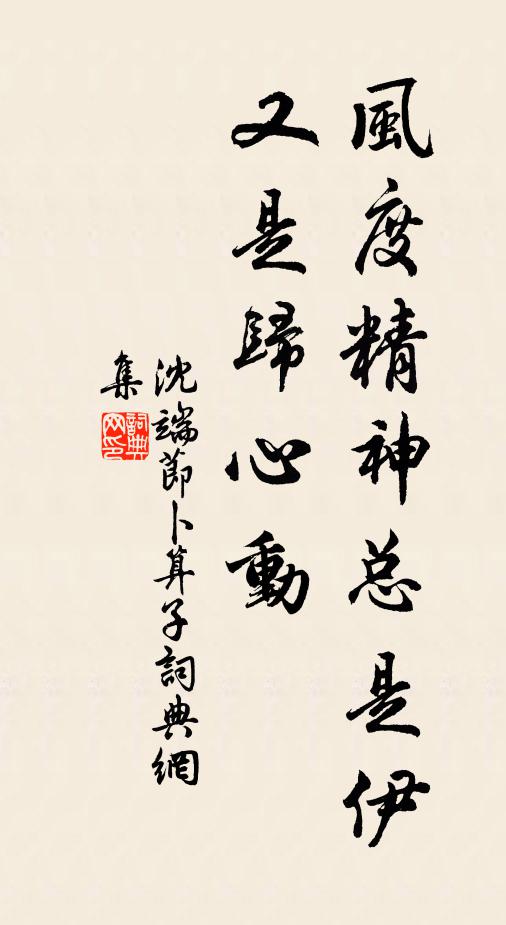 風度精神总是伊
又是歸心動
沈端節卜算子詞典網
集
詞典
网印